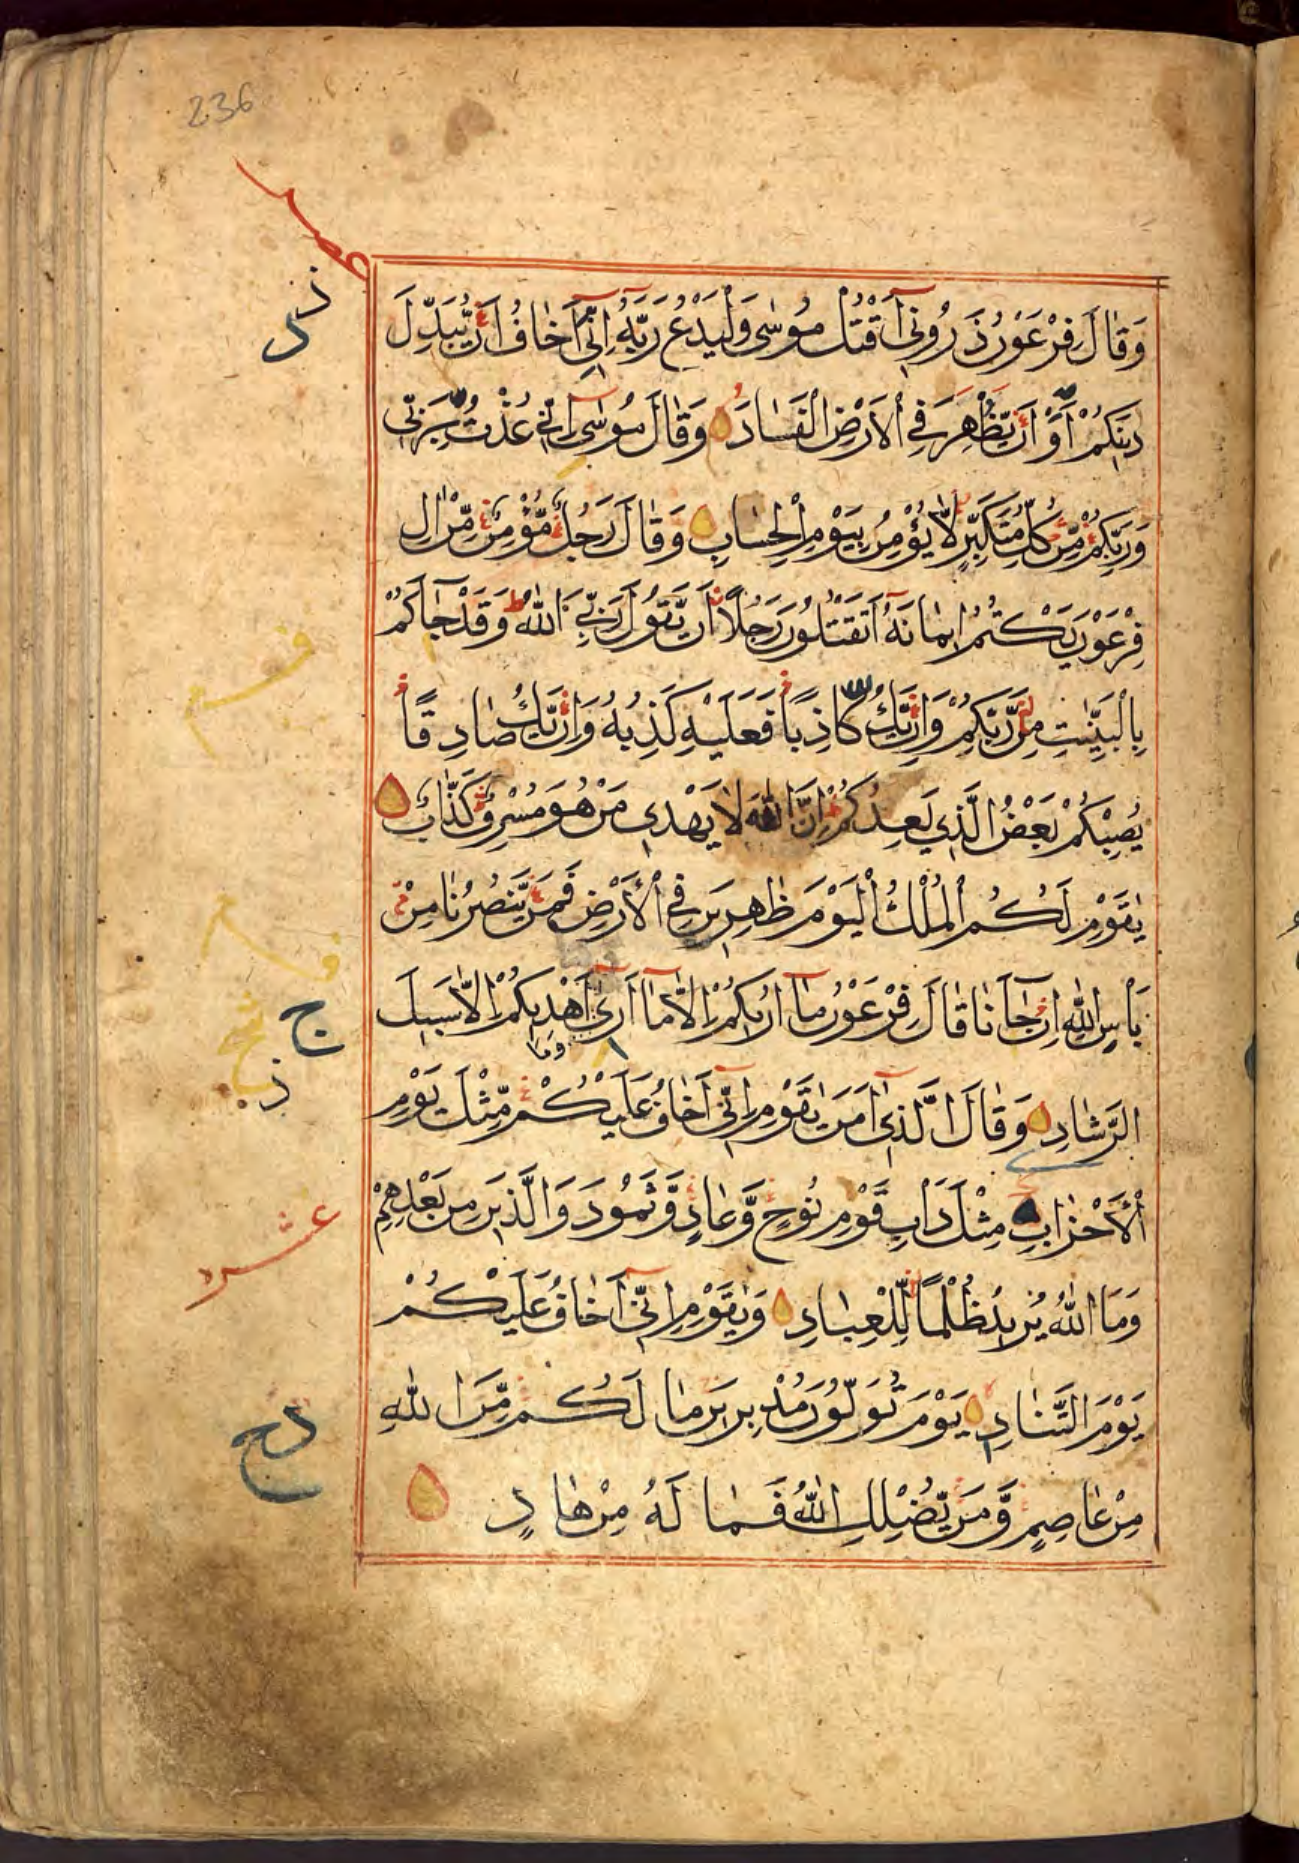 236
وَقَالَ فِرْعَوْنُ ذَرُونِي أَقْتُلْ مُوسٰى وَلْيَدْعُ رَبَّهُ اِنِّي اَخَافُ اَنْ يُبَدِّلَ
دِينَكُمْ اَوْ اَنْ يُظْهِرَ فِي الْاَرْضِ الْفَسَادَ وَقَالَ مُوسٰى اِنِّي عُذْتُ بِرَبِّي
وَرَبِّكُمْ مِنْ كُلِّ مُتَكَبِّرٍ لَا يُؤْمِنُ بِيَوْمِ الْحِسَابِ وَقَالَ رَجُلٌ مُؤْمِنٌ مِنْ اٰلِ
فِرْعَوْنَ يَكْتُمُ اِيمَانَهُ اَتَقْتُلُونَ رَجُلًا اَنْ يَقُولَ رَبِّيَ اللّٰهُ وَقَدْ جَآءَكُمْ
بِالْبَيِّنٰتِ مِنْ رَبِّكُمْ وَاِنْ يَكُ كَاذِبًا فَعَلَيْهِ كَذِبُهُ وَاِنْ يَكُ صَادِقًا
يُصِبْكُمْ بَعْضُ الَّذِي يَعِدُكُمْ اِنَّ اللّٰهَ لَا يَهْدِي مَنْ هُوَ مُسْرِفٌ كَذَّابٌ
يٰقَوْمِ لَكُمُ الْمُلْكُ الْيَوْمَ ظٰهِرِينَ فِي الْاَرْضِ فَمَنْ يَنْصُرُنَا مِنْ
بَأْسِ اللّٰهِ اِنْ جَآءَنَا قَالَ فِرْعَوْنُ مَا اُرِيكُمْ اِلَّا مَا اَرٰى وَمَا اَهْدِيكُمْ اِلَّا سَبِيلَ
الرَّشَادِ وَقَالَ الَّذِي اٰمَنَ يٰقَوْمِ اِنِّي اَخَافُ عَلَيْكُمْ مِثْلَ يَوْمِ
الْاَحْزَابِ مِثْلَ دَأْبِ قَوْمِ نُوحٍ وَعَادٍ وَثَمُودَ وَالَّذِينَ مِنْ بَعْدِهِمْ
وَمَا اللّٰهُ يُرِيدُ ظُلْمًا لِلْعِبَادِ وَيٰقَوْمِ اِنِّي اَخَافُ عَلَيْكُمْ
يَوْمَ التَّنَادِ يَوْمَ تُوَلُّونَ مُدْبِرِينَ مَا لَكُمْ مِنَ اللّٰهِ
مِنْ عَاصِمٍ وَمَنْ يُضْلِلِ اللّٰهُ فَمَا لَهُ مِنْ هَادٍ
ج
عشر